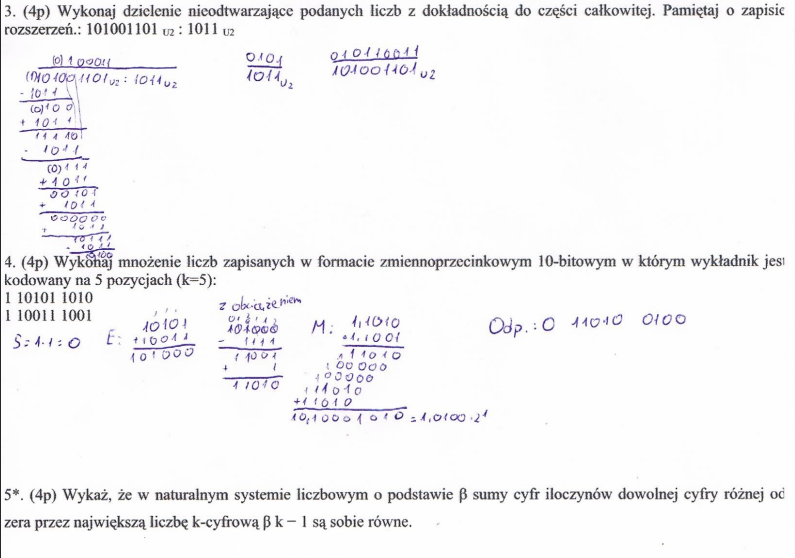 3. (4p) Wykonaj dzielenie nieodtwarzające podanych liczb z dokładnością do części całkowitej. Pamiętaj o zapisie
rozszerzeń.: 101001101 U2 : 1011 U2
(0) 100011
(1)101001101 U2 : 1011 U2
- 1011
(0)100
+ 1011
11110
- 1011
(0)111
+1011
00101
+ 1011
000000
+ 1011
10111
- 1011
0101
1011 U2
010110011
101001101 U2
4. (4p) Wykonaj mnożenie liczb zapisanych w formacie zmiennoprzecinkowym 10-bitowym w którym wykładnik jest
kodowany na 5 pozycjach (k=5):
1 10101 1010
1 10011 1001
S=1·1=0
E: 10101
+10011
101000
z obciążeniem
101000
- 1111
11001
+ 1
11010
M: 1,1010
·1,1001
11010
00000
00000
11010
+11010
10,10001010 = 1,0100·2¹
Odp.: 0 11010 0100
5*. (4p) Wykaż, że w naturalnym systemie liczbowym o podstawie β sumy cyfr iloczynów dowolnej cyfry różnej od
zera przez największą liczbę k-cyfrową β k − 1 są sobie równe.